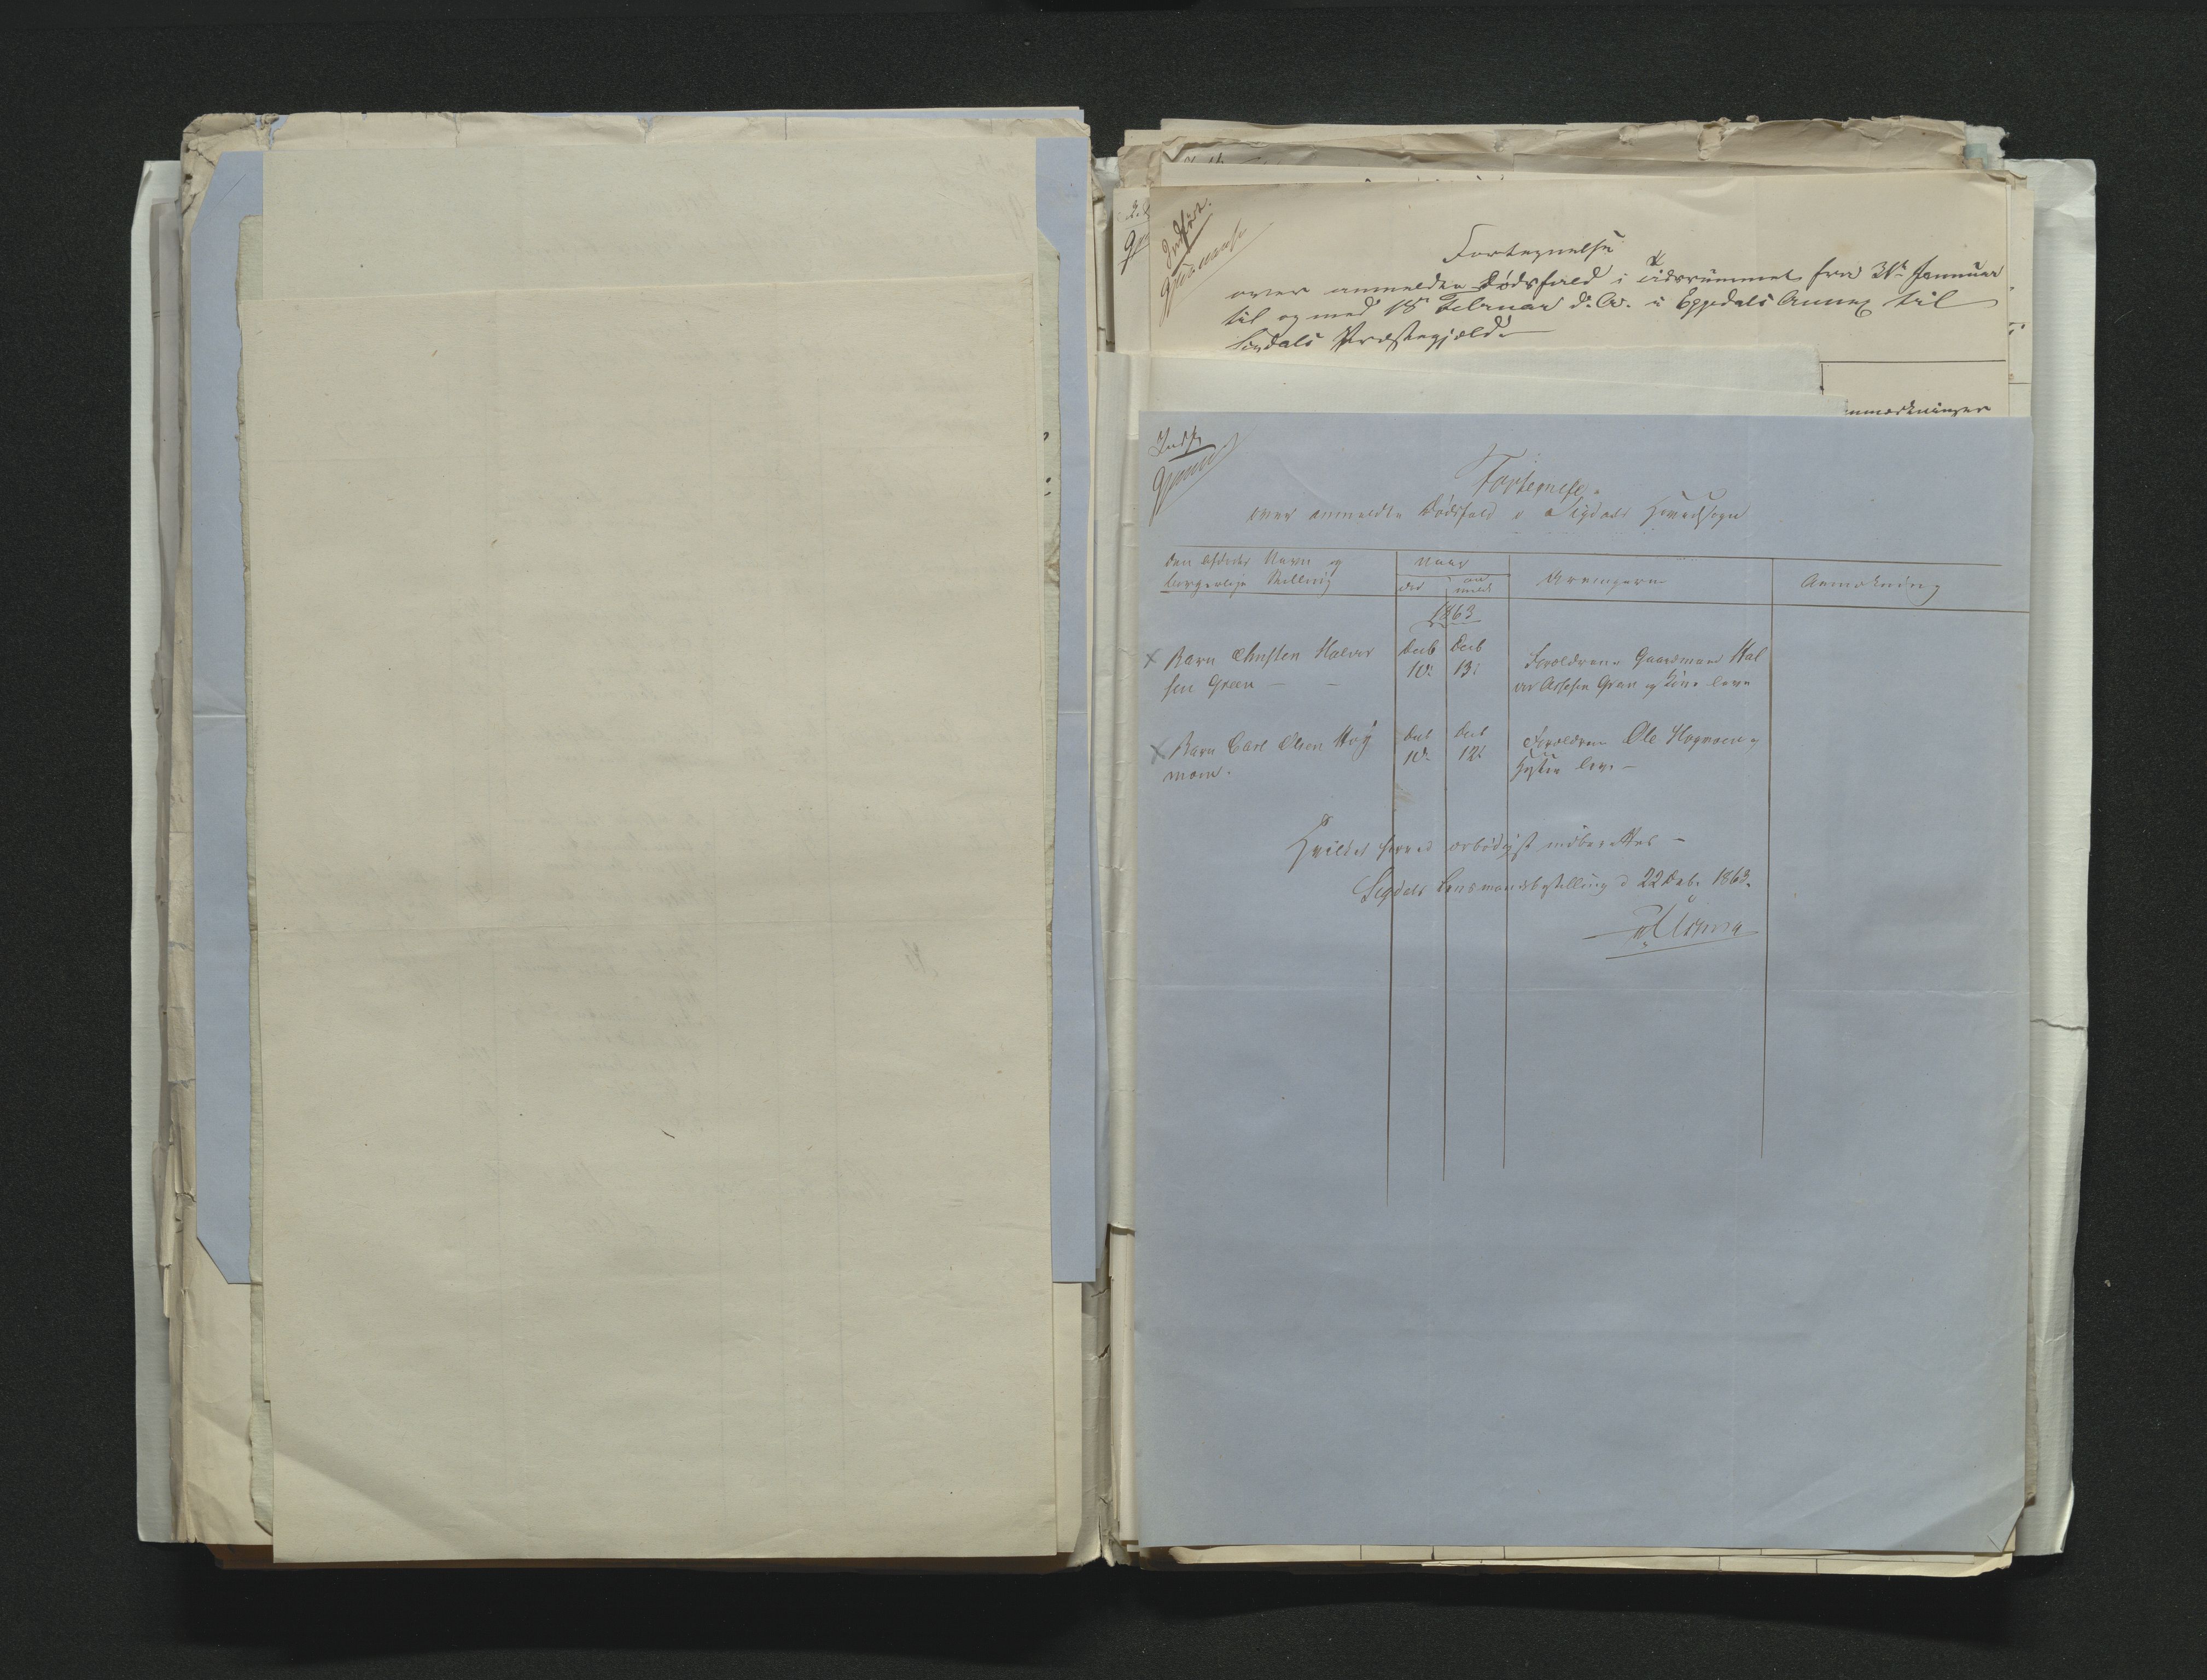 Indført.
Fortegnelse
over anmeldte Dødsfald i Tidsrummet fra 31te Januar
til og med 18 Februar d. A. i Eggedals Annex til
Sigdals Præstegjeld.
Anmærkninger
Indf.
Fortegnelse
over anmeldte Dødsfald i Sigdals Hovedsogn
Den afdødes Navn og
borgerlige Stilling
Naar
død
an
meldt
Arvingerne
Anmærkning
1863
Barn Christen Halvor
sen Green — —
Decb
10.
Decb
13.
Forældrene Gaardmand Hal
vor Assesen Green og Kone leve
Barn Carl Olsen Hog
moen.
Decb
10.
Decb
12.
Forældrene Ole Hogmoen og
Hustru leve —
Hvilket herved ærbødigst indberettes —
Sigdals Lensmandsbestilling d 22 Decb. 1863.